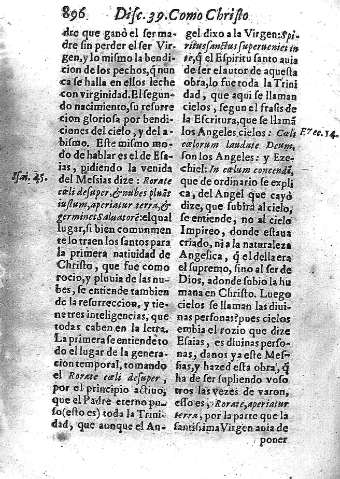 896 Disc. 39. Como Christo
dre que ganó el ser madre
sin perder el ser Virgen,
y lo mismo la bendicion
de los pechos, q̃ nunca
se halla en ellos leche
con virginidad. El segundo
nacimiento, su resurreccion
gloriosa por bendiciones
del cielo, y del abismo.
Este mismo modo
de hablar es el de Esaias,
pidiendo la venida
del Messias dize: Rorate
cœli desuper, & nubes pluãt
iustum, aperiatur terra, &
germinet Saluatorẽ: el qual
lugar, si bien comunmente
lo traen los santos para
la primera natiuidad de
Christo, que fue como
rocio, y pluuia de las nubes,
se entiende tambien
de la resurreccion, y tiene
tres inteligencias, que
todas caben en la letra.
La primera se entiende todo
el lugar de la generacion
temporal, tomando
el Rorate cœli desuper,
por el principio actiuo,
que el Padre eterno puso
(esto es) toda la Trinidad,
que aunque el An-
Isai. 45.
gel dixo a la Virgen: Spiritus
sanctus superueniet in
te, q̃ el Espiritu santo auia
de ser el autor de aquesta
obra, lo fue toda la Trinidad,
que aqui se llaman
cielos, segun el frasis de
la Escritura, que se llaman
los Angeles cielos: Cœli
cœlorum laudate Deum,
son los Angeles: y Ezechiel:
In cœlum concendã,
que de ordinario se explica,
del Angel que cayò
dize, que subirà al cielo,
se entiende, no al cielo
Impireo, donde estaua
criado, ni a la naturaleza
Angelica, q̃ el della era
el supremo, sino al ser de
Dios, adonde subio la humana
en Christo. Luego
cielos se llaman las diuinas
personas? pues cielos
embia el rozio que dize
Esaias, es diuinas personas,
danos ya este Messias,
y hazed esta obra, q̃
ha de ser supliendo vosotros
las vezes de varon,
esso es; Rorate, aperiatur
terra, por la parte que la
santissima Virgen auia de
poner
14.